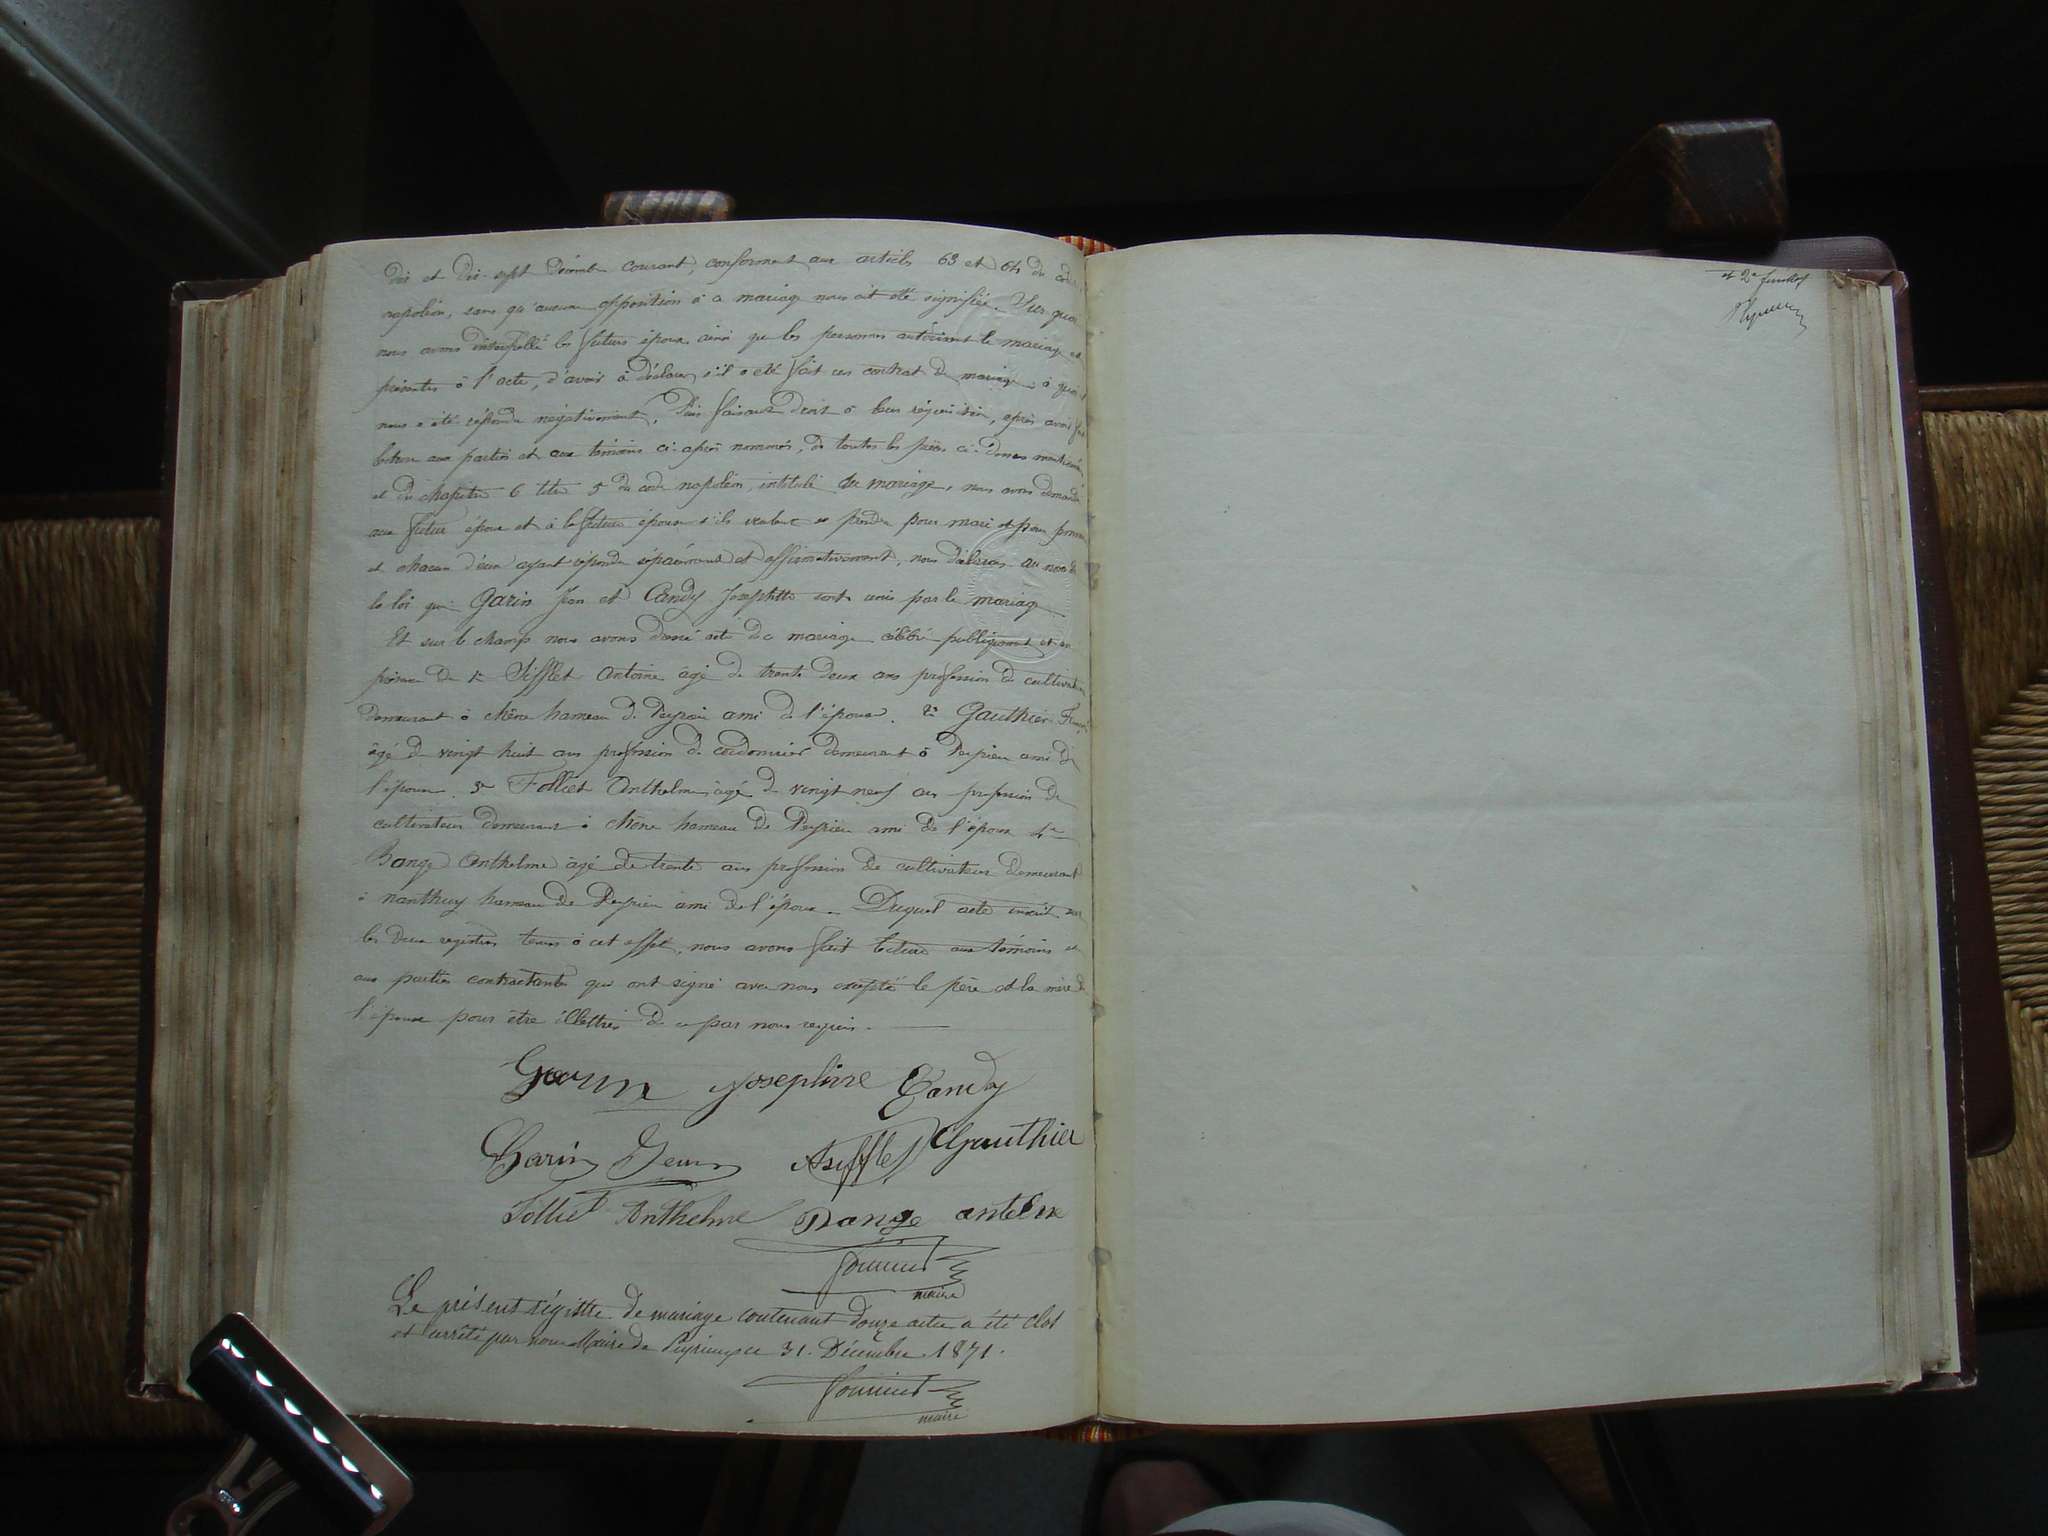 dix et dix-sept Décembre courant, conforment aux articles 63 et 64 du code
napoléon, sans qu'aucune opposition à ce mariage nous ait été signifiée. Sur quoi
nous avons interpellé les futurs époux, ainsi que les personnes autorisant le mariage et
présentes à l'acte, d'avoir à déclarer s'il a été fait un contrat de mariage, à quoi il
nous a été répondu négativement, Puis faisant droit à leur réquisition, après avoir fait
lecture aux parties et aux témoins ci-après nommés, de toutes les pièces ci-dessus
et du chapitre 6 titre 5 du code napoléon, intitulé du mariage, nous avons demandé
au futur époux et à la future épouse s'ils veulent se prendre pour mari et pour femme
et chacun d'eux ayant répondu séparément et affirmativement, nous déclarons au nom de
la loi que Garin Jean et Candy Josephtte sont unis par le mariage
Et sur le champ nous avons dressé acte de ce mariage célébré publiquement et en
présence de 1° Sifflet Antoine âgé de trente deux ans profession de cultivateur
demeurant à chêne hameau de Peyrieu ami de l'époux. 2° Gauthier
âgé de vingt huit ans profession de cordonnier demeurant à Peyrieu ami de
l'époux. 3° Folliet Anthelme âgé de vingt neuf ans profession de
cultivateur demeurant à chêne hameau de Peyrieu ami de l'époux 4°
Bange Anthelme âgé de trente ans profession de cultivateur demeurant
à nanthuy hameau de Peyrieu ami de l'époux. Duquel acte inscrit sur
les deux registres tenus à cet effet, nous avons fait lecture aux témoins et
aux parties contractantes qui ont signé avec nous excepté le père et la mère de
l'épouse pour être illettrés de ce par nous requis.
Garin Josephine Candy
Garin Jean Asifflet Gauthier
Folliet Anthelme Bange antelme
maire
Le présent régistre de mariage contenant douze actes a été clos
et arrêté par nous Maire de Peyrieu, ce 31. Décembre 1871.
maire
et 2e feuillet